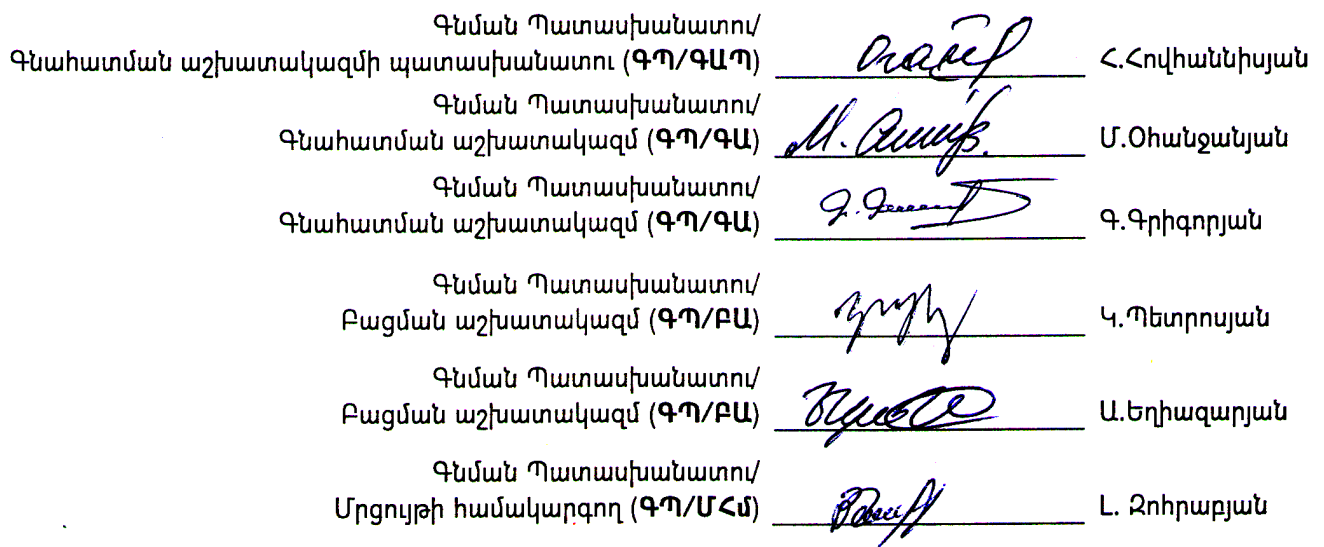 Գնման Պատասխանատու/
Գնահատման աշխատակազմի պատասխանատու (ԳՊ/ԳԱՊ) Հ.Հովհաննիսյան
Գնման Պատասխանատու/
Գնահատման աշխատակազմ (ԳՊ/ԳԱ) Մ.Օհանջանյան
Գնման Պատասխանատու/
Գնահատման աշխատակազմ (ԳՊ/ԳԱ) Գ.Գրիգորյան
Գնման Պատասխանատու/
Բացման աշխատակազմ (ԳՊ/ԲԱ) Կ.Պետրոսյան
Գնման Պատասխանատու/
Բացման աշխատակազմ (ԳՊ/ԲԱ) Ա.Եղիազարյան
Գնման Պատասխանատու/
Մրցույթի համակարգող (ԳՊ/ՄՀմ) Լ. Զոհրաբյան